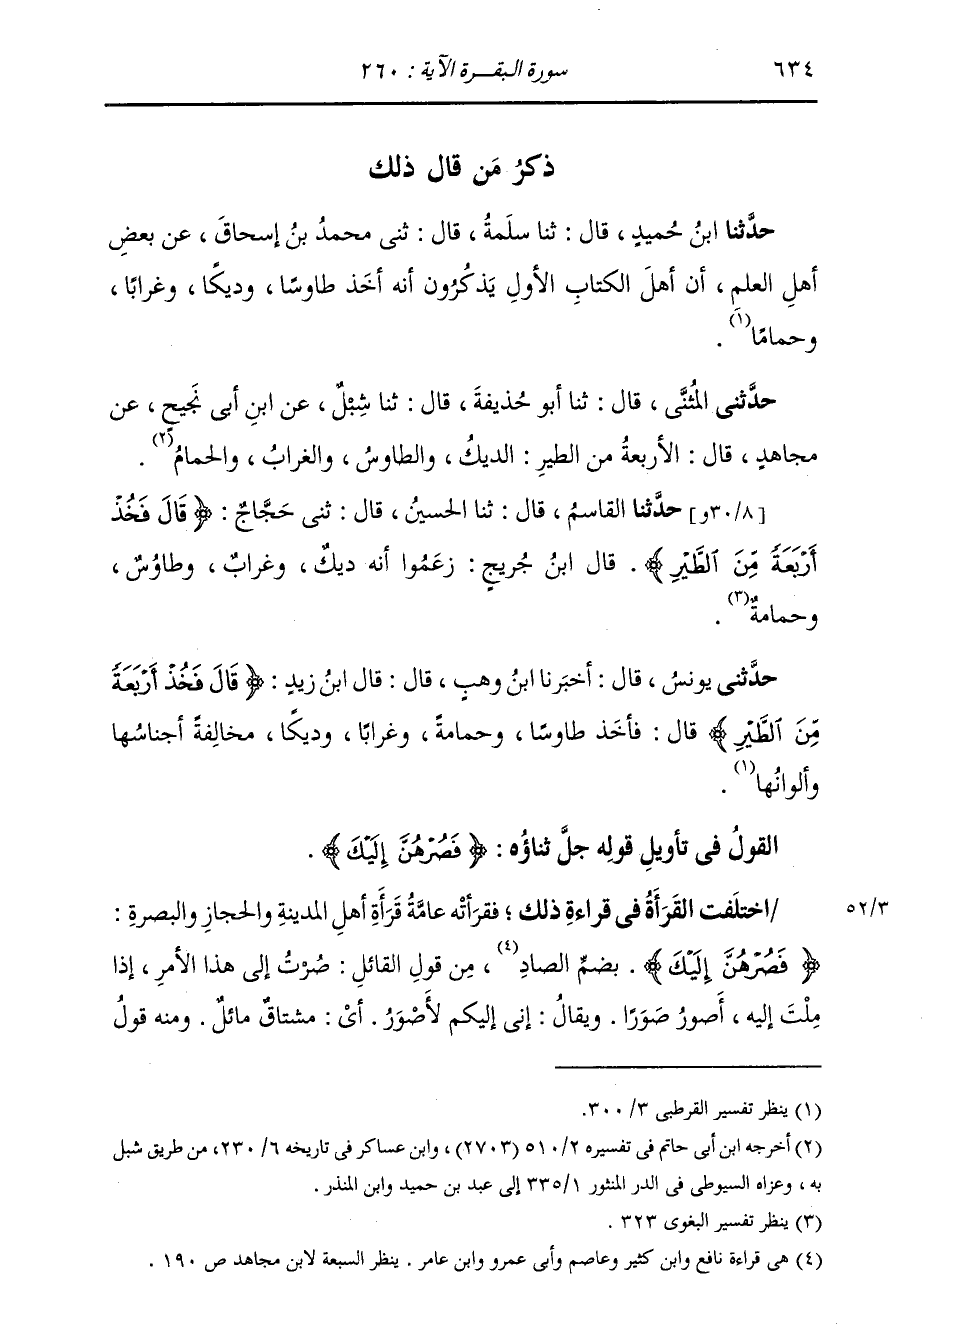 ٦٣٤ سورة البقرة الآية : ٢٦٠
ذكرُ مَن قال ذلك
حدَّثنا ابنُ حُميدٍ ، قال : ثنا سلَمةُ ، قال : ثنى محمدُ بنُ إسحاقَ ، عن بعضِ
أهلِ العلمِ ، أن أهلَ الكتابِ الأولِ يَذكُرُون أنه أخَذ طاوسًا ، وديكًا ، وغرابًا ،
وحمامًا(١) .
حدَّثنى المُثنَّى ، قال : ثنا أبو حُذيفةَ ، قال : ثنا شِبْلٌ ، عن ابنِ أبى نَجيحٍ ، عن
مجاهدٍ ، قال : الأربعةُ من الطيرِ : الديكُ ، والطاوسُ ، والغرابُ ، والحمامُ(٢) .
[٣٠/٨و] حدَّثنا القاسمُ ، قال : ثنا الحسينُ ، قال : ثنى حَجَّاجٌ : ﴿ قَالَ فَخُذْ
أَرْبَعَةً مِّنَ ٱلطَّيْرِ ﴾ . قال ابنُ جُريجٍ : زعَمُوا أنه ديكٌ ، وغرابٌ ، وطاوُسٌ ،
وحمامةٌ(٣) .
حدَّثنى يونسُ ، قال : أخبَرنا ابنُ وهبٍ ، قال : قال ابنُ زيدٍ : ﴿ قَالَ فَخُذْ أَرْبَعَةً
مِّنَ ٱلطَّيْرِ ﴾ قال : فأخَذ طاوسًا ، وحمامةً ، وغرابًا ، وديكًا ، مخالِفةً أجناسُها
وألوانُها(١) .
القولُ فى تأويلِ قولِه جلَّ ثناؤُه : ﴿ فَصُرْهُنَّ إِلَيْكَ ﴾ .
٥٢/٣ /اختلَفت القَرَأَةُ فى قراءةِ ذلك ؛ فقرَأتْه عامَّةُ قَرَأَةِ أهلِ المدينةِ والحجازِ والبصرةِ :
﴿ فَصُرْهُنَّ إِلَيْكَ ﴾ . بضمِّ الصادِ(٤) ، مِن قولِ القائلِ : صُرْتُ إلى هذا الأمرِ ، إذا
مِلْتَ إليه ، أَصورُ صَوَرًا . ويقالُ : إنى إليكم لَأَصْوَرُ . أىْ : مشتاقٌ مائلٌ . ومنه قولُ
(١) ينظر تفسير القرطبى ٣/ ٣٠٠.
(٢) أخرجه ابن أبى حاتم فى تفسيره ٥١٠/٢ (٢٧٠٣) ، وابن عساكر فى تاريخه ٦/ ٢٣٠، من طريق شبل
به ، وعزاه السيوطى فى الدر المنثور ٣٣٥/١ إلى عبد بن حميد وابن المنذر .
(٣) ينظر تفسير البغوى ٣٢٣ .
(٤) هى قراءة نافع وابن كثير وعاصم وأبى عمرو وابن عامر . ينظر السبعة لابن مجاهد ص ١٩٠ .